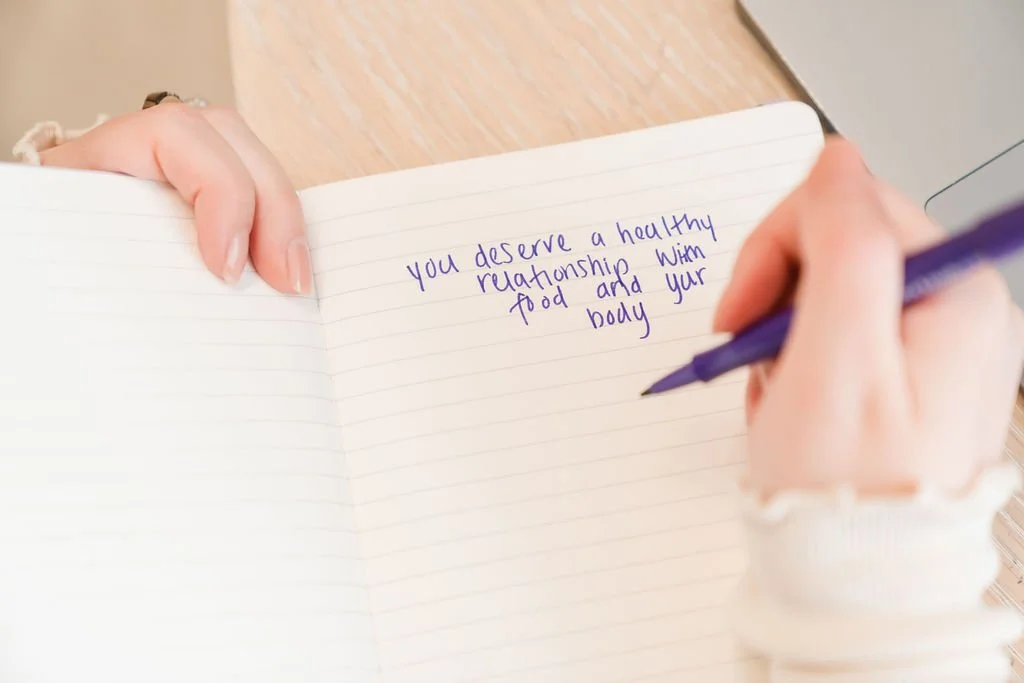 you deserve a healthy
relationship with
food and yur
body